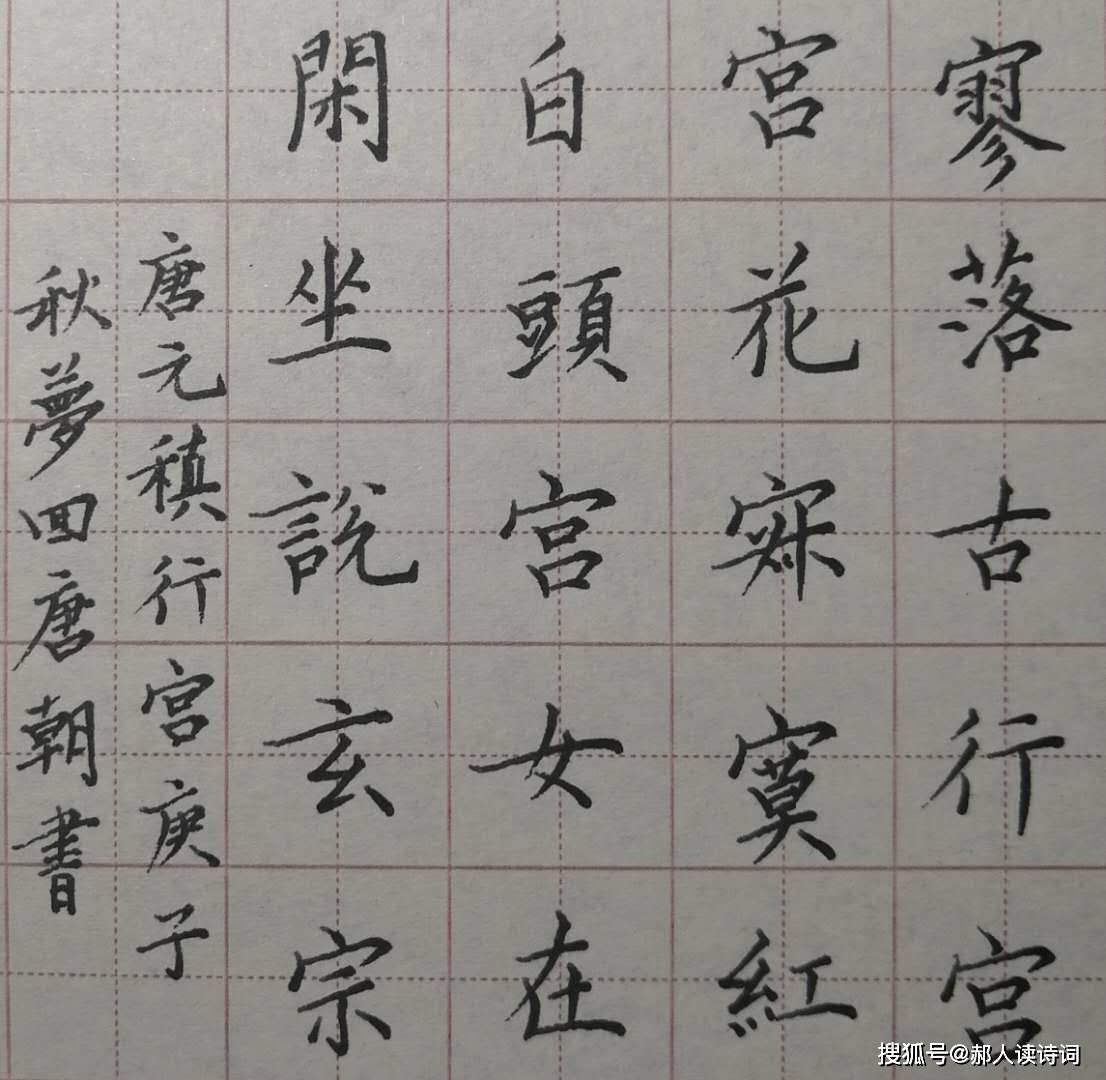 寥落古行宫
宫花寂寞紅
白頭宫女在
閑坐說玄宗
唐元稹行宫庚子
秋夢回唐朝書
搜狐号@郝人读诗词